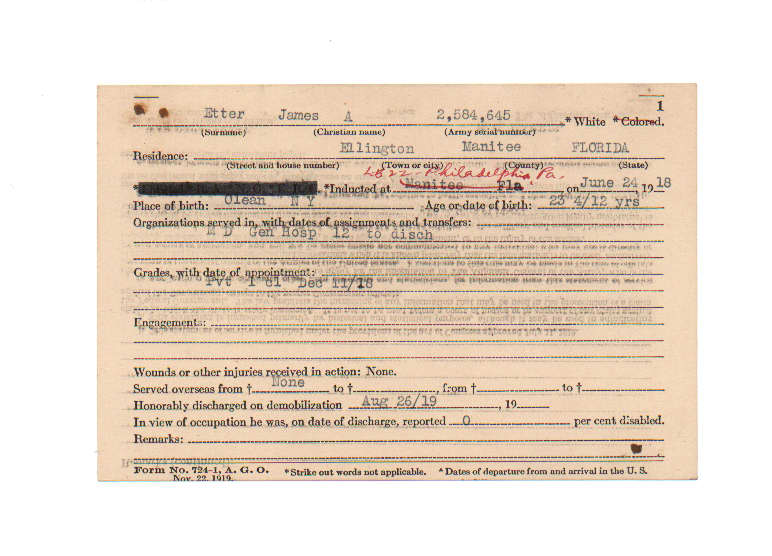 1
Etter James A 2,584,645 * White * Colored.
(Surname) (Christian name) (Army serial number)
Ellington Manitee FLORIDA
Residence:
(Street and house number) (Town or city) (County) (State)
LB 22 - Philadelphia Pa.
* *Inducted at Manitee Fla on June 24, 19 18
Place of birth: Olean N Y Age or date of birth: 23 4/12 yrs
Organizations served in, with dates of assignments and transfers:
M D Gen Hosp 12 to disch
Grades, with date of appointment:
Pvt 1 cl Dec 11/18
Engagements:
Wounds or other injuries received in action: None.
Served overseas from † None to †, from † to †
Honorably discharged on demobilization Aug 26/19, 19
In view of occupation he was, on date of discharge, reported 0 per cent disabled.
Remarks:
Form No. 724-1, A. G. O. *Strike out words not applicable. † Dates of departure from and arrival in the U. S.
Nov. 22, 1919.